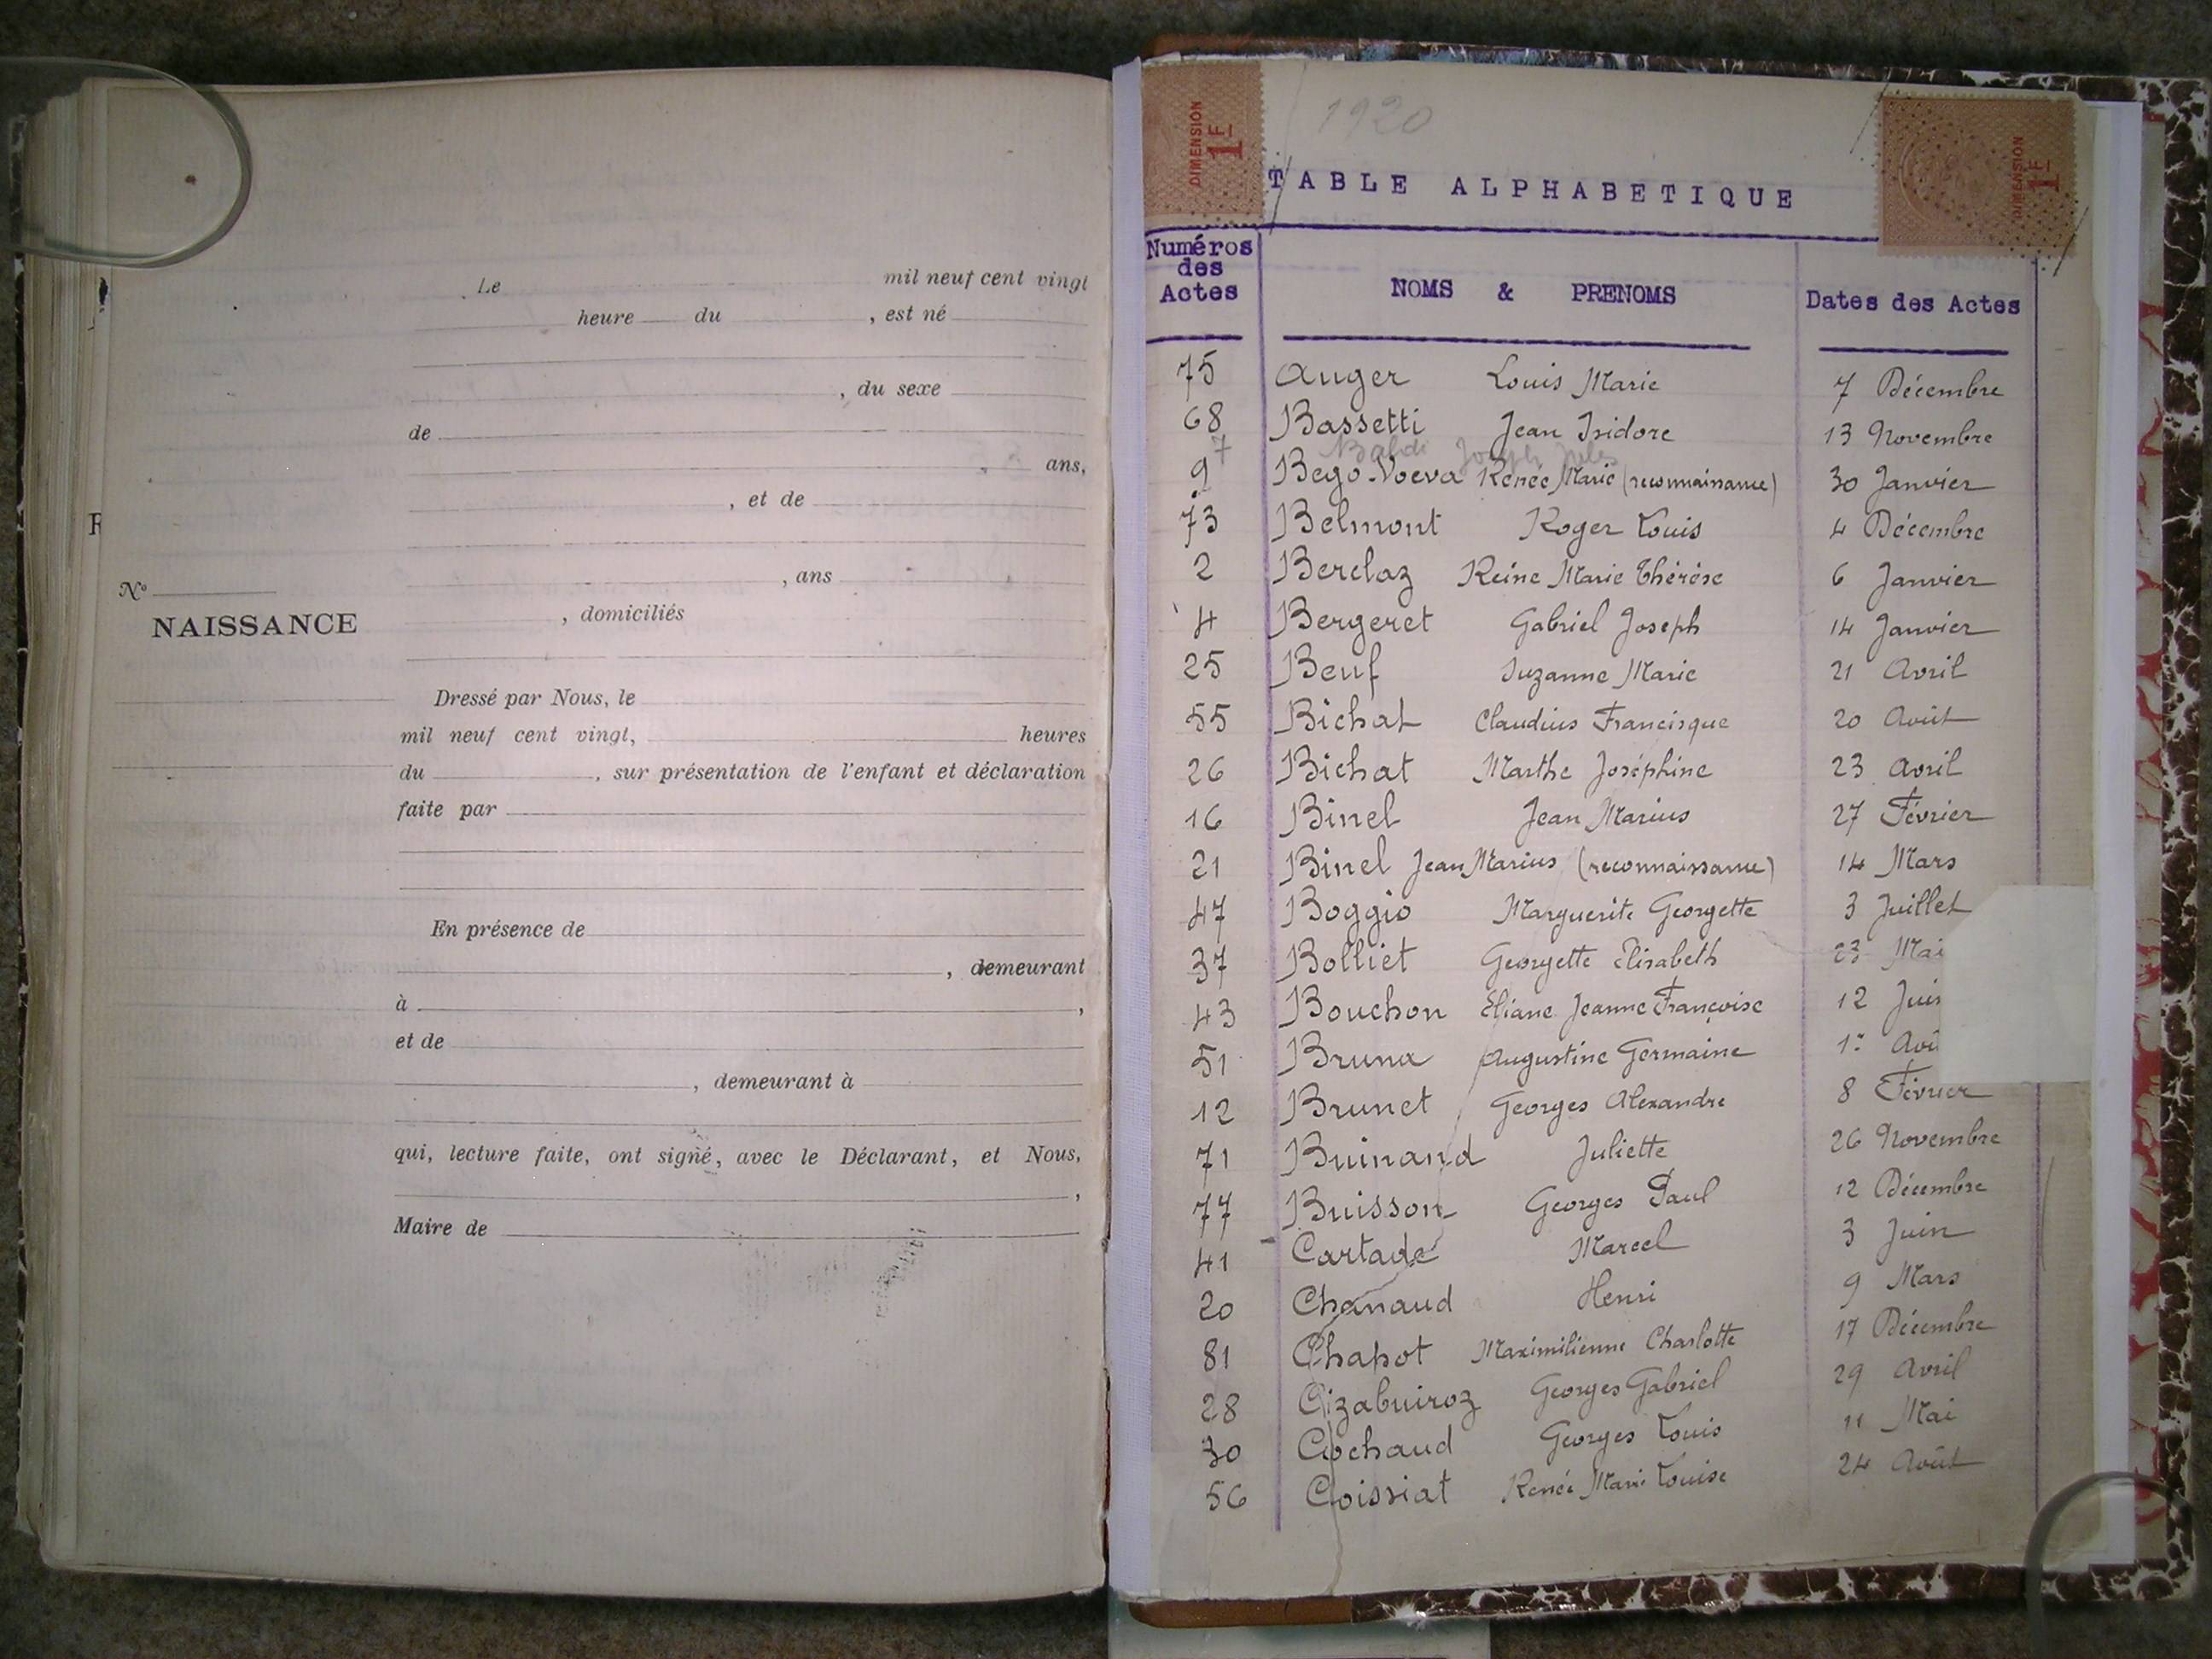 Le mil neuf cent vingt
heure du , est né
, du sexe
de
ans,
, et de
, ans
N°
NAISSANCE
, domiciliés
Dressé par Nous, le
mil neuf cent vingt, heures
du , sur présentation de l'enfant et déclaration
faite par
En présence de
, demeurant
à ,
et de
, demeurant à
qui, lecture faite, ont signé, avec le Déclarant, et Nous,
,
Maire de
1920
DIMENSION
1F
DIMENSION
1F
TABLE ALPHABETIQUE
Numéros des Actes NOMS & PRENOMS Dates des Actes
75 Auger Louis Marie 7 Décembre
68 Bassetti Jean Isidore 13 Novembre
7 Baldi Joseph Jules
9 Bego-Voeva Renée Marie (reconnaissance) 30 Janvier
73 Belmont Roger Louis 4 Décembre
2 Berclaz Reine Marie Thérèse 6 Janvier
4 Bergeret Gabriel Joseph 14 Janvier
25 Beuf Suzanne Marie 21 Avril
55 Bichat Claudius Francisque 20 Août
26 Bichat Marthe Joséphine 23 Avril
16 Binel Jean Marius 27 Février
21 Binel Jean Marius (reconnaissance) 14 Mars
47 Boggio Marguerite Georgette 3 Juillet
37 Bolliet Georgette Elisabeth 23 Mai
43 Bouchon Eliane Jeanne Françoise 12 Juin
51 Bruna Augustine Germaine 1er Aoû
12 Brunet Georges Alexandre 8 Février
71 Buinand Juliette 26 Novembre
77 Buisson Georges Paul 12 Décembre
41 Cartade Marcel 3 Juin
20 Chanaud Henri 9 Mars
81 Chapot Maximilienne Charlotte 17 Décembre
28 Cizabuiroz Georges Gabriel 29 Avril
30 Cochaud Georges Louis 11 Mai
56 Coissiat Renée Marie Louise 24 Août